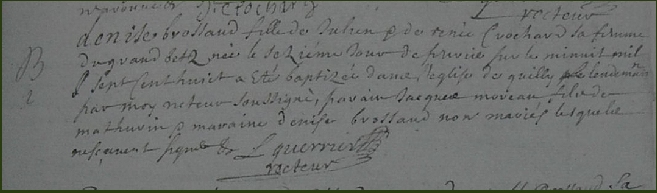 recteur
denise brossaud fille de Julien & de renee Crochard sa femme
du grand betz née le seziéme Jour de sur le minuit mil
B
Sept Cent huict a eté baptizée dans l'eglise de quilly le lendemain
par moy recteur soussigné, parain Jacques moreau fils de
mathurin & maraine denise brossaud non mariés lesquels
ne sçavent signer
L guerrier
recteur